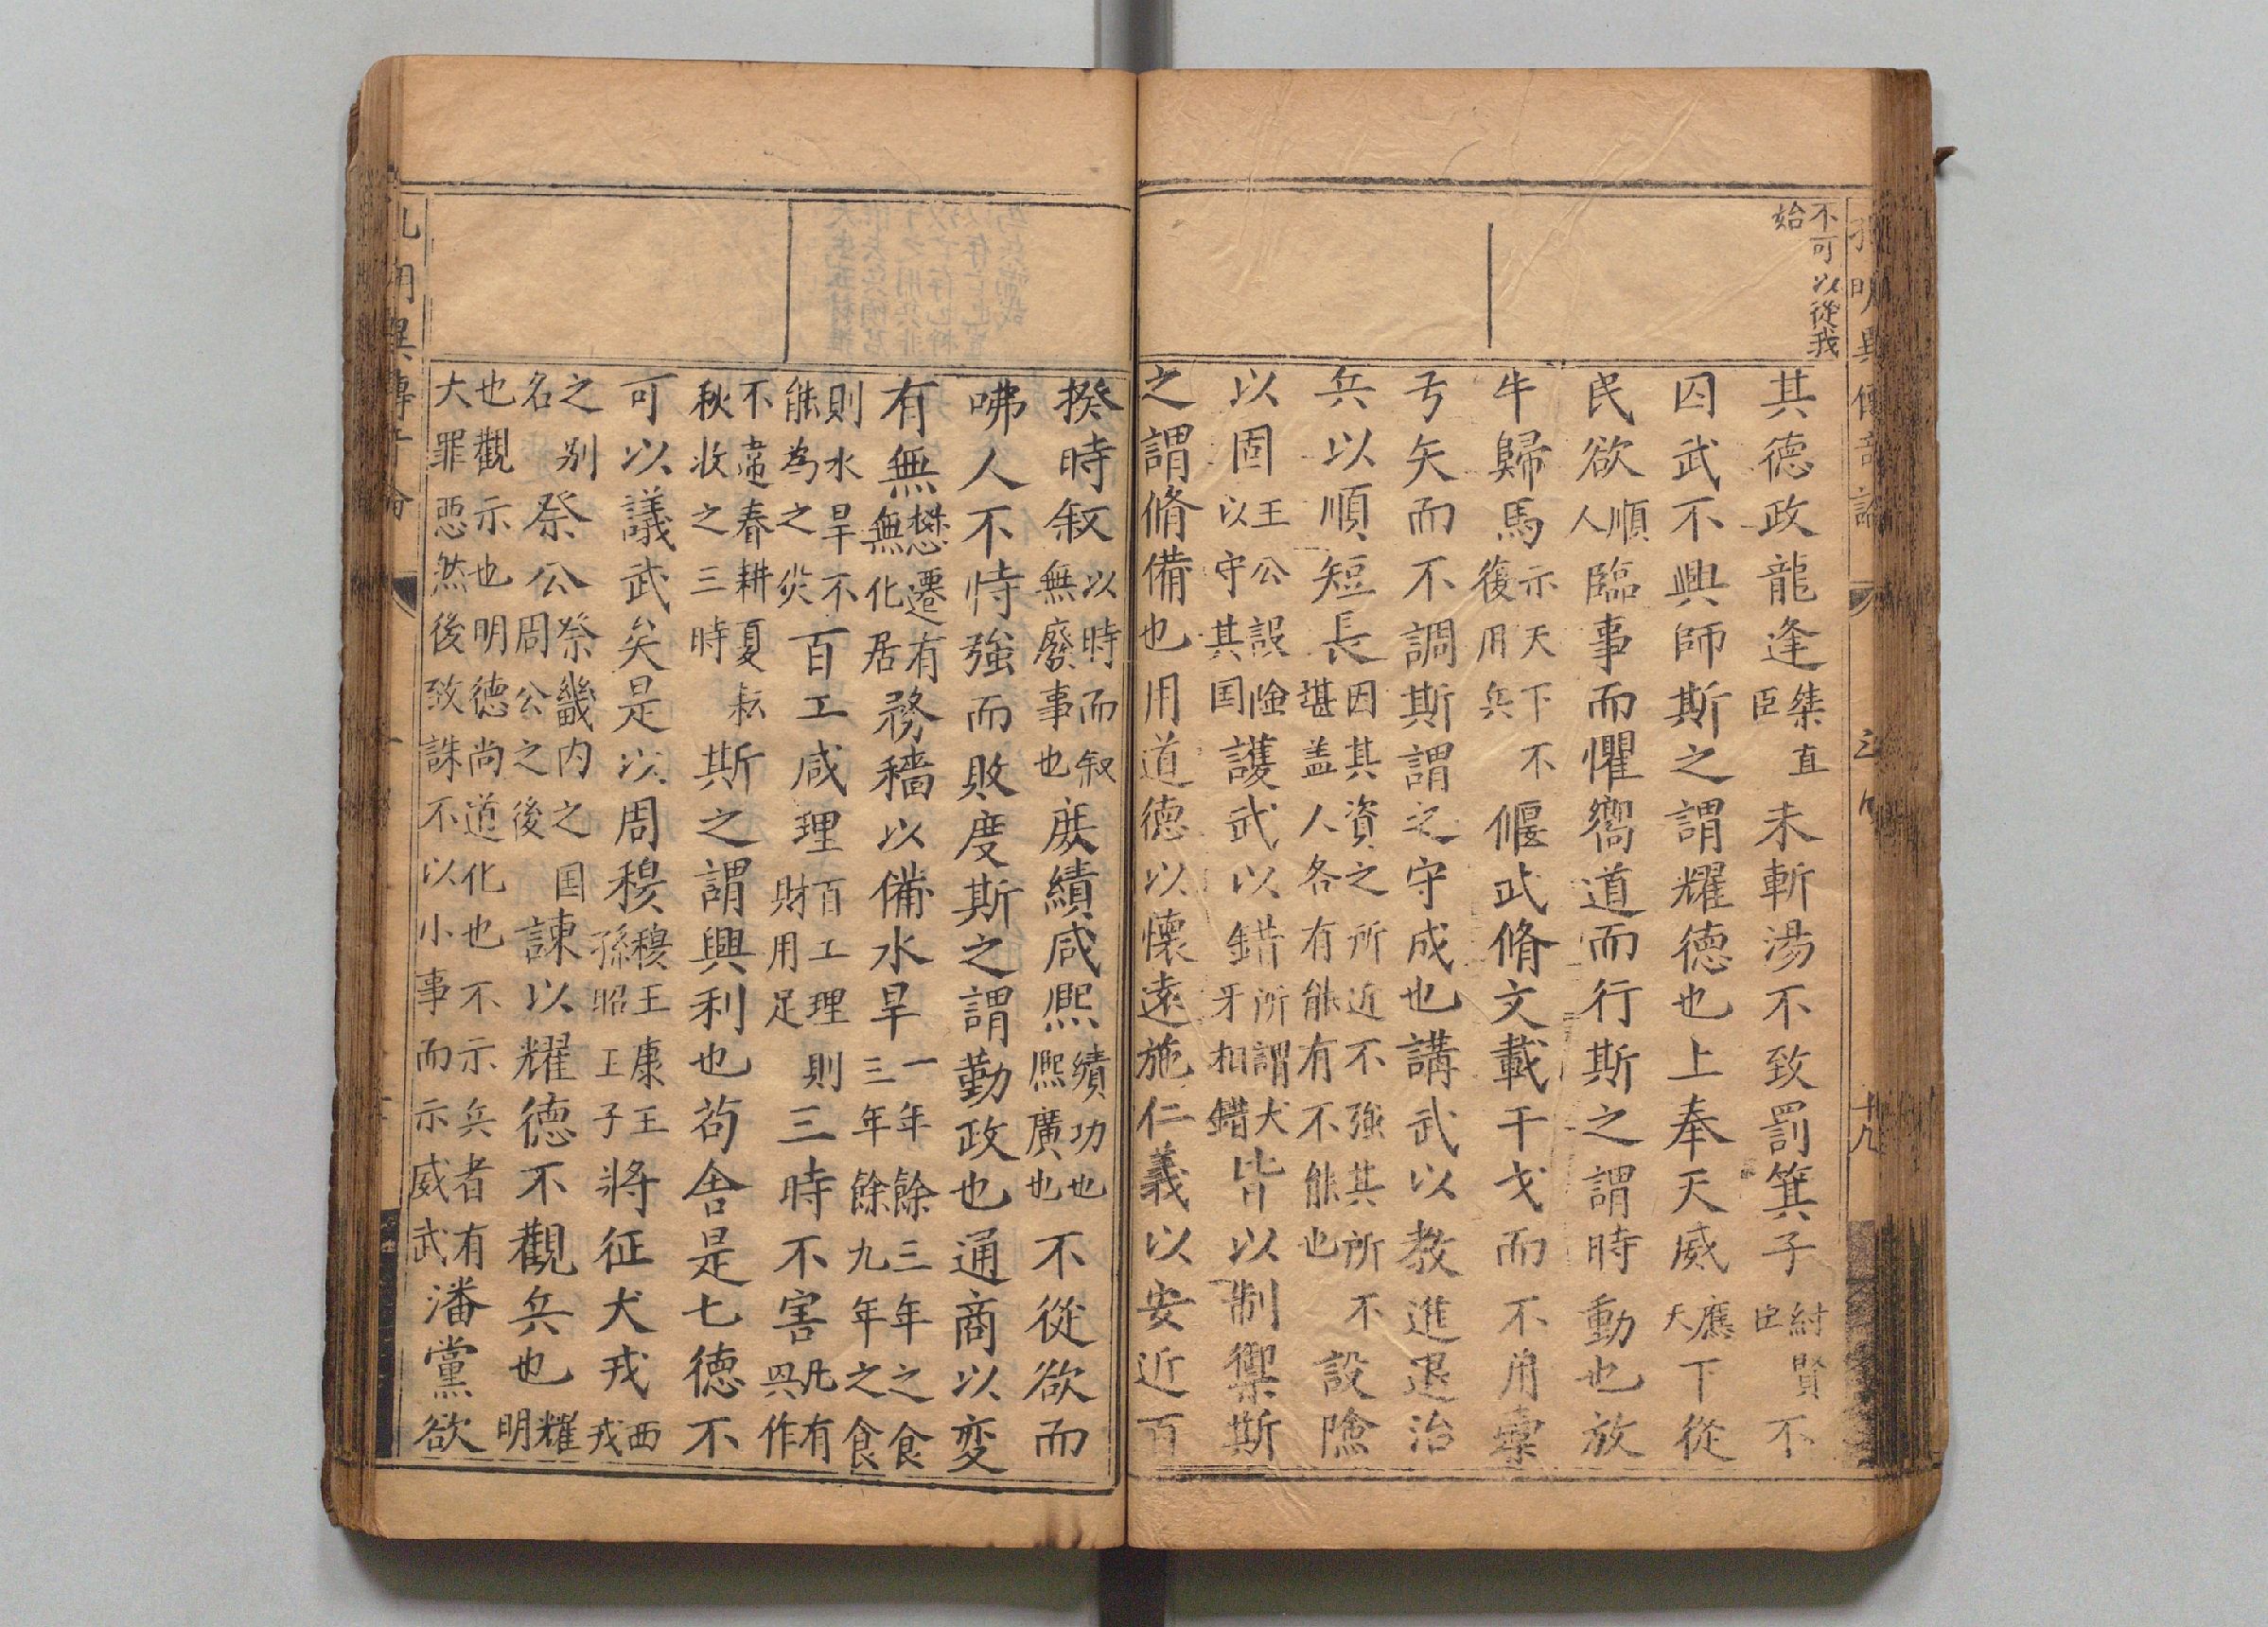 不可以從我
始
其德政龍逢桀直臣未斬湯不致罰箕子紂賢臣不
囚武不興師斯之謂耀德也上奉天威應天下從
民欲順人臨事而懼嚮道而行斯之謂時動也放
牛歸馬示天下不復用兵偃武脩文載干戈而不用櫜
弓矢而不調斯謂之守成也講武以教進退治
兵以順短長因其資之所近不強其所不堪盖人各有能有不能也設險
以固王公設險以守其国護武以錯所謂犬牙相錯皆以制禦斯
之謂脩備也用道德以懷遠施仁義以安近百
揆時叙以時而叙無廢事也庶績咸熈績功也熈廣也不從欲而
咈人不恃強而敗度斯之謂勤政也通商以変
有無懋遷有無化居務穡以備水旱一年年餘三年之食三年餘九年之食
則水旱不能為之災百工咸理百工理則財用足三時不害凡有興作
不違春耕夏耘秋收之三時斯之謂興利也苟舍是七德不
可以議武矣是以周穆穆王康王孫昭王子將征犬戎西戎
之别名祭公祭畿内之国周公之後諫以耀德不觀兵也耀明
也觀示也明德尚道化也不示兵者有大罪惡然後致誅不以小事而示威武潘黨欲